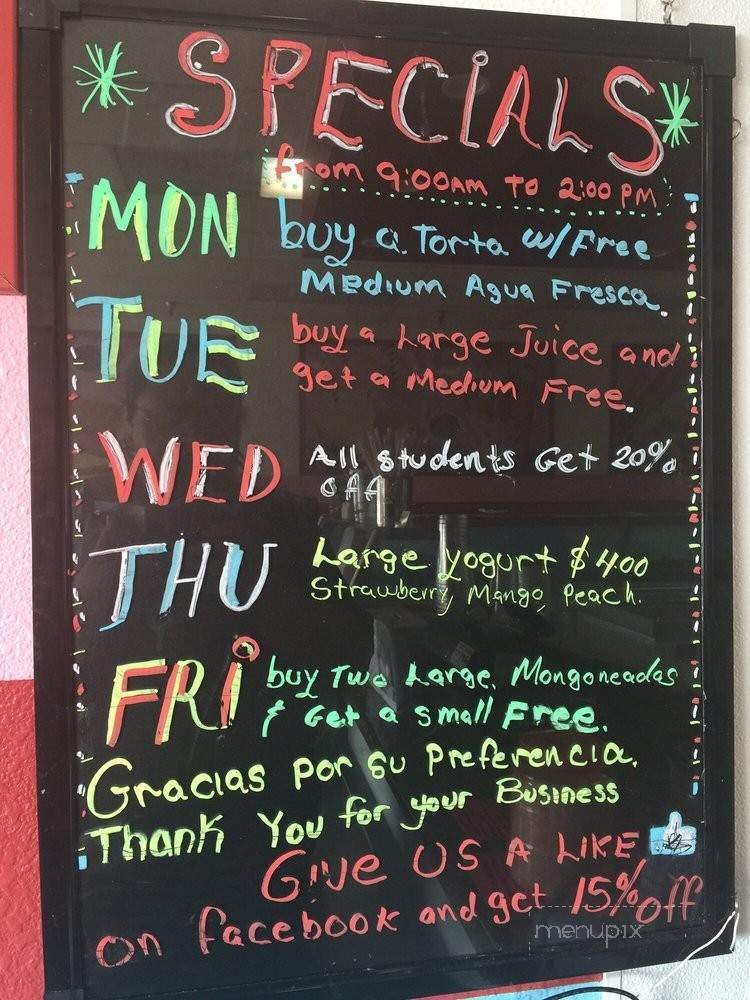 SPECIALS
from 9:00AM TO 2:00 PM
MON buy a Torta w/Free
Medium Agua Fresca.
TUE buy a Large Juice and
get a Medium Free.
WED All students Get 20%
OFF
THU Large yogurt $4.00
Strawberry, Mango, Peach.
FRI buy Two Large. Mongoneadas
& Get a small Free.
Gracias por su preferencia.
Thank You for your Business
GIVE US A LIKE
on facebook and get 15% off
menupix